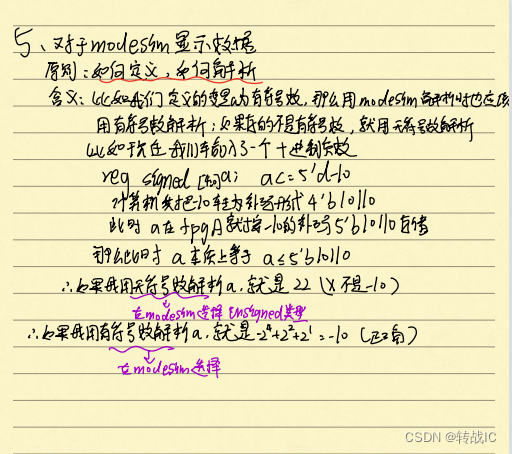 5、对于modesim显示数据
原则:如何定义,如何解析
含义:比如我们定义的变量a为有符号数,那么用modesim解析时也应该
用有符号数解析;如果定的不是有符号数,就用无符号数解析
比如现在我们输入了一个十进制负数
reg signed [4:0]a; a<=5'd-10
计算机会把-10转为补码形式 4'b10110
此时a在fpgA就按-10的补码5'b10110存储
那么此时a本质上等于 a≤5'b10110
∴如果我用无符号数解析a,就是22(X不是-10)
在modesim选择Unsigned类型
∴如果我用有符号数解析a,就是-2⁴+2²+2¹=-10(正确)
在modesim选择
CSDN @转战IC